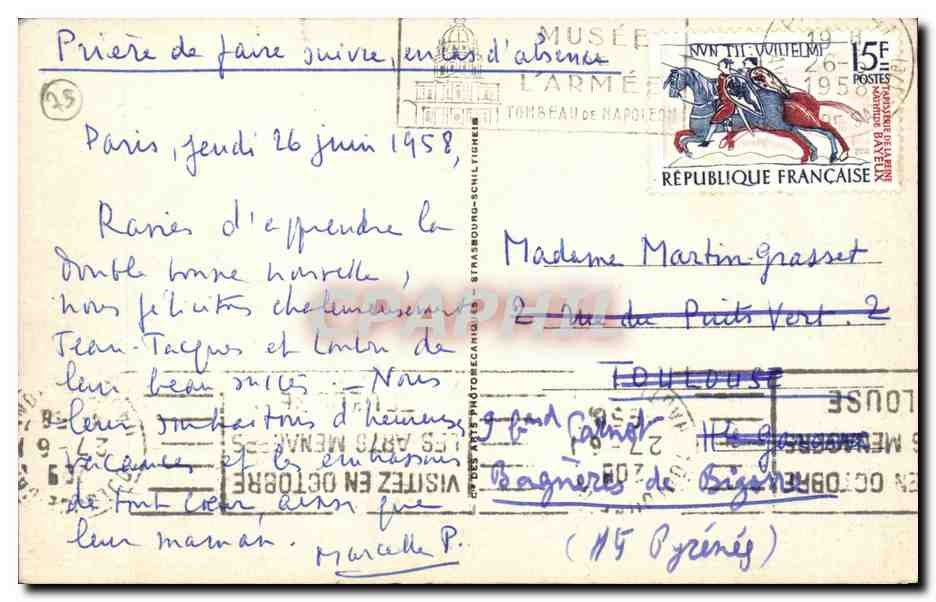 Prière de faire suivre, en cas d'absence
MUSÉE
L'ARMÉE
TOMBEAU DE NAPOLEON
19 H
26-
1958
NVNTII: VVILIELMI
15F
POSTES
TAPISSERIE DE LA REINE
MATHILDE BAYEUX
RÉPUBLIQUE FRANÇAISE
25
Paris, jeudi 26 juin 1958,
Ravies d'apprendre la
double bonne nouvelle,
nous félicitons chaleureusement
Jean-Jacques et Loulou de
leur beau succès. - Nous
leur souhaitons d'heureuses
vacances et les embrassons
de tout cœur, ainsi que
leur maman.
Marcelle P.
CIE DES ARTS PHOTOMECANIQUES - STRASBOURG-SCHILTIGHEIM
CPAPHIL
Madame Martin-Grasset
2 rue du Puits Vert. 2
TOULOUSE
Hte Garonne
9 Band Carnot
Bagnères de Bigorre
(Htes Pyrénées)
VISITEZ EN OCTOBRE
LES ARTS MENAGERS
27-6
EN OCTOBRE
S MENAGERS
LOUSE